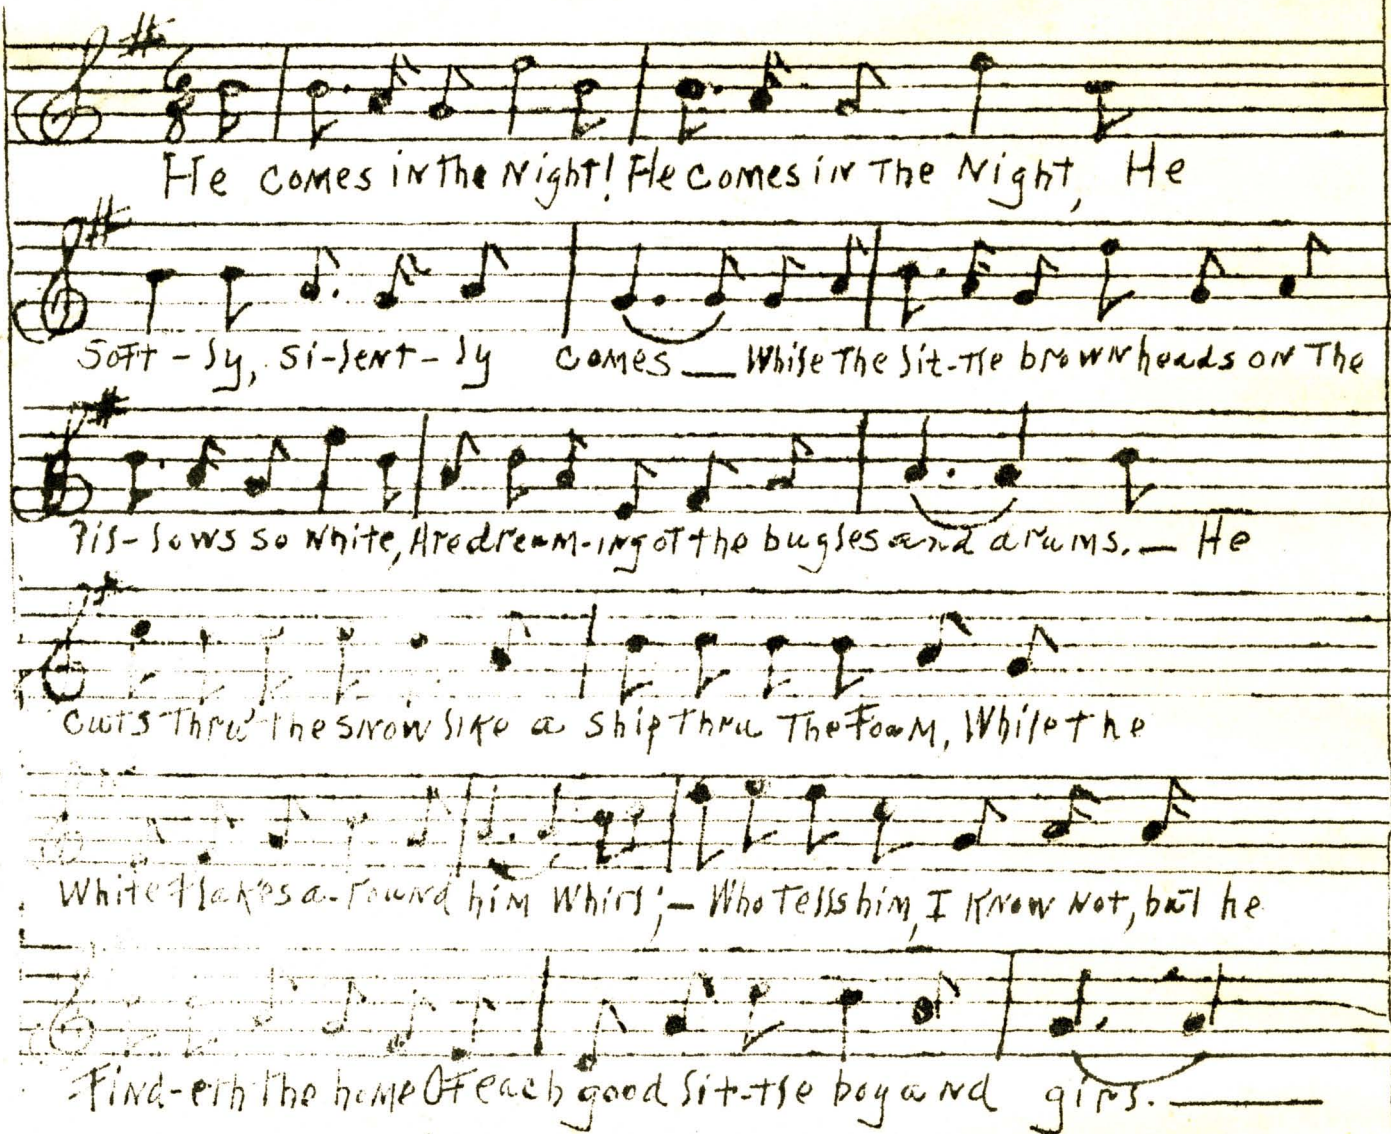 He comes in the Night! He comes in The Night, He
Soft-ly, Si-lent-ly comes — While The lit-tle brown heads on The
Pil-lows so white, Are dream-ing of the bugles and drums. — He
Cuts Thru' the snow like a ship Thru The Foam, While the
White flakes a-round him Whirl; — Who Tells him, I know Not, but he
Find-eth the home Of each good lit-tle boy and girl. —